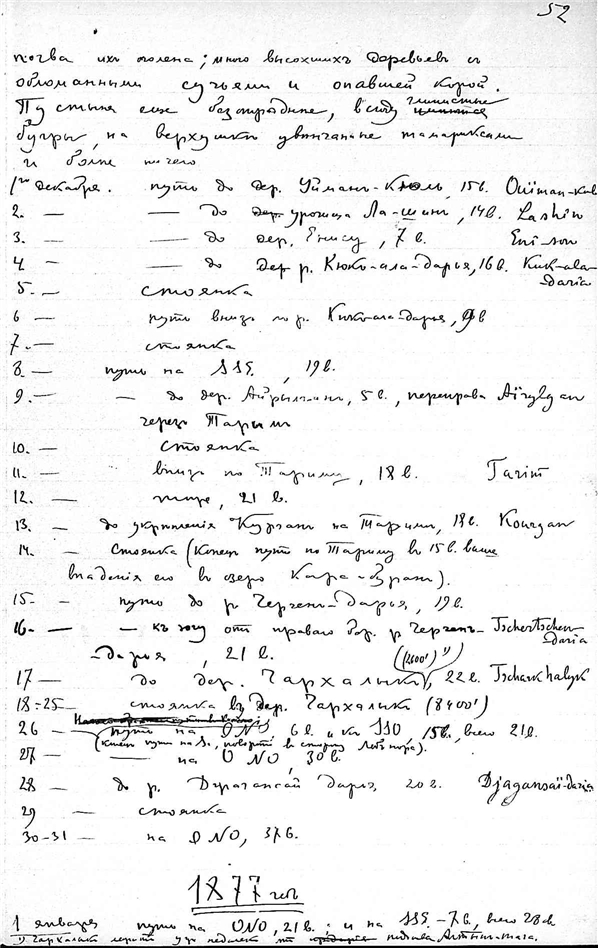 52
почва их оголена; много высохшихъ деревьевъ съ
обломанными сучьями и опавшей корой.
Пустыня еще безотрадние, всюду глинистые
бугры, на верхушки увѣнчанные тамариксами
и болѣе ничего
1го декабря. путь до дер. Уйманъ-Кюль, 15 в. Ouïman-kul
2. — — до урочища Ла-шинъ, 14 в. Lashin
3. — — до дер. Енису, 7 в. Eni-sou
4. — — до р. Кюкъ-ала-дарья, 16 в. Kuk-ala-daria
5. — стоянка
6 — путь внизъ по р. Кюкъ-ала-дарья, 9 в
7. — стоянка
8. — путь на SSO, 19 в.
9. — — до дер. Айрылганъ, 5 в., переправа Aïrylgan
черезъ Таримъ
10. — стоянка
11. — внизъ по Тариму, 18 в. Tarim
12. — тоже, 21 в.
13. — до укрѣпленія Курганъ на Таримѣ, 18 в. Kourgan
14. — стоянка (Конецъ пути по Тариму въ 15 в. выше
впаденія его въ озеро Кара-Буранъ).
15 — путь до р Черченъ-Дарья, 19 в.
16. — — къ югу отъ праваго бер. р Черченъ- Tschertschen-daria
-дарья, 21 в. (2600')
17 — до дер. Чархалыкъ, 22 в. Tscharkhalyk
18-25 — стоянка въ дер. Чархалыкъ (8400')
26 — путь на ONO, 6 в. и на SSO, 15 в., всего 21 в.
(конецъ пути на S., поворотъ въ сторону Лобъ-нора).
27 — — на ONO, 30 в.
28 — до р. Джагансай Дарья, 20 в. Djagansaï-daria
29 — стоянка
30-31 — на ONO, 37 в.
1877 годъ
1 января путь на ONO, 21 в. и на SSO - 7 в., всего 28 в
1) Чархалыкъ лежитъ у подъема Алтынъ-тага.